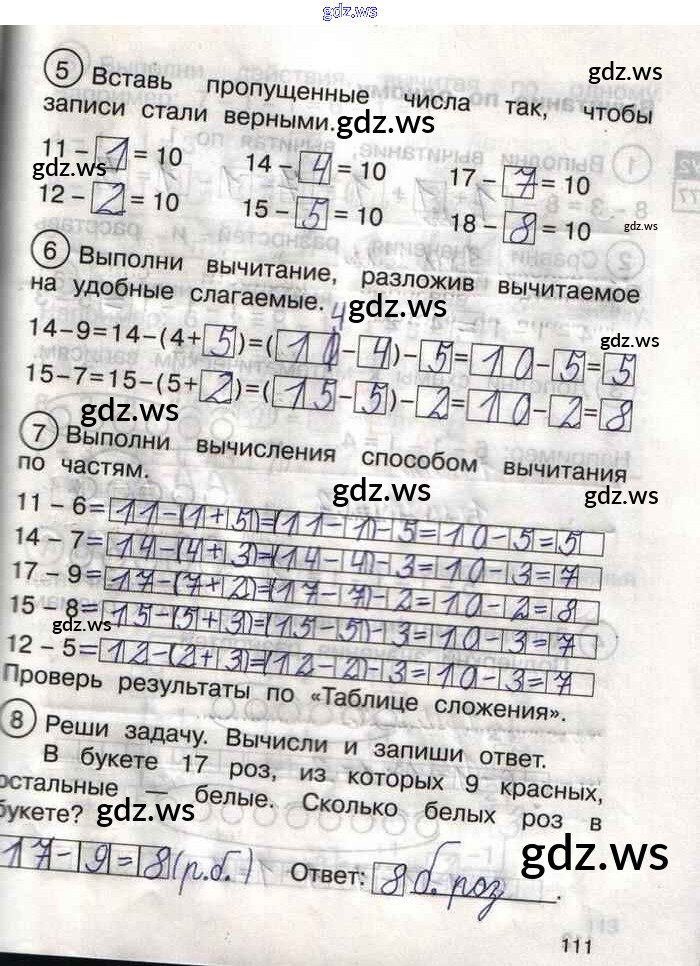 gdz.ws
5 Вставь пропущенные числа так, чтобы gdz.ws
записи стали верными. gdz.ws
11 – 1 = 10 14 – 4 = 10 17 – 7 = 10
gdz.ws
12 – 2 = 10 15 – 5 = 10 18 – 8 = 10 gdz.ws
6 Выполни вычитание, разложив вычитаемое
на удобные слагаемые. gdz.ws
4
14–9=14–(4+5)=(10–4)–5=10–5=5
15–7=15–(5+2)=(15–5)–2=10–2=8
gdz.ws gdz.ws
7 Выполни вычисления способом вычитания
по частям. gdz.ws gdz.ws
11 – 6=11–(1+5)=(11–1)–5=10–5=5
14 – 7=14–(4+3)=(14–4)–3=10–3=7
17 – 9=17–(7+2)=(17–7)–2=10–2=8
15 – 8=15–(5+3)=(15–5)–3=10–3=7
gdz.ws
12 – 5=12–(2+3)=(12–2)–3=10–3=7
Проверь результаты по «Таблице сложения».
8 Реши задачу. Вычисли и запиши ответ.
В букете 17 роз, из которых 9 красных,
остальные — белые. Сколько белых роз в
букете? gdz.ws gdz.ws
17–9=8(р.б.) Ответ: 8 б. роз.
111